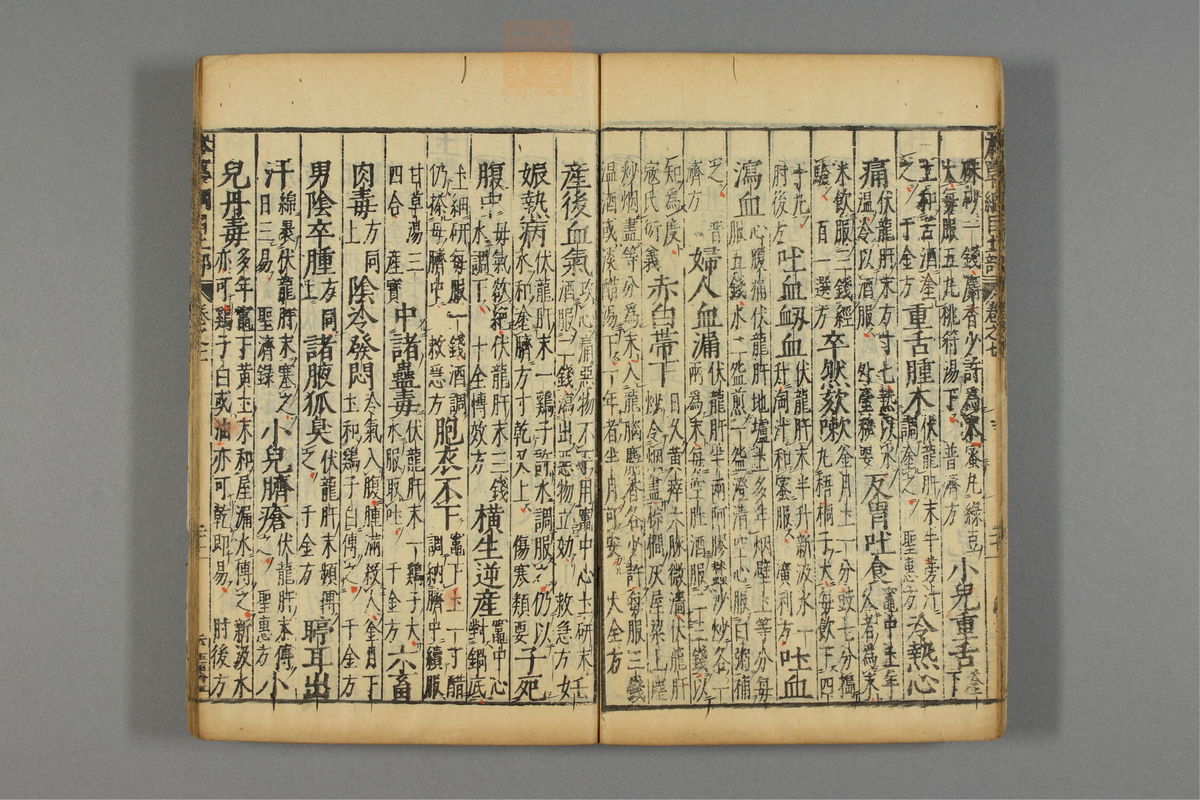 本草綱目土部 卷之七
硃砂一錢麝香少許為末蜜丸綠豆大每服五丸桃符湯下 普濟方 小兒重舌下
土和苦酒塗之 千金方 重舌腫木伏龍肝末牛蒡汁調塗之 聖惠方 冷熱心
痛伏龍肝末方寸匕熱以水溫冷以酒服 外臺秘要 反胃吐食竈中土年久者為末
米飲服三錢經驗 百一選方 卒然欬嗽釜月土一分豉七分搗丸梧桐子大每飲下四
十丸 肘後方 吐血衂血伏龍肝末半升新汲水一升淘汁和蜜服 廣利方 吐血
瀉血心腹痛伏龍肝地壚土多年烟壁土等分每服五錢水二盌煎一盌澄清空心服白粥補
之 普濟方 婦人血漏伏龍肝半兩阿膠蠶沙炒各一兩為末每空肚酒服二三錢以
知為度 寇氏衍義 赤白帶下日久黃瘁六脈微濇伏龍肝炒令烟盡椶櫚灰屋梁上塵
炒烟盡等分為末入龍腦麝香各少許每服三錢溫酒或淡醋湯下一年者半月可安 大全方
產後血氣攻心痛惡物不下用竈中心土研末酒服二錢瀉出惡物立効 救急方 妊
娠熱病伏龍肝末一鷄子許水調服之仍以水和塗臍方寸乾又上 傷寒類要 子死
腹中母氣欲絕伏龍肝末三錢水調下 十全博救方 橫生逆產竈中心對鍋底
土細研每服一錢酒調仍搽母臍中 救急方 胞衣不下竈下土一寸醋調納臍中續服
甘草湯三四合 產寶 中諸蠱毒伏龍肝末一鷄子大水服取吐 千金方 六畜
肉毒方同上 陰冷發悶冷氣入腹腫滿殺人釜月下土和鷄子白傅之 千金方
男陰卒腫方同上 諸腋狐臭伏龍肝末頻傅之 千金方 聤耳出
汁綿裹伏龍肝末塞之日三易 聖濟錄 小兒臍瘡伏龍肝末傅之 聖惠方 小
兒丹毒多年竈下黃土末和屋漏水傅之新汲水亦可鷄子白或油亦可乾即易 肘後方
本草綱目土部 卷之七